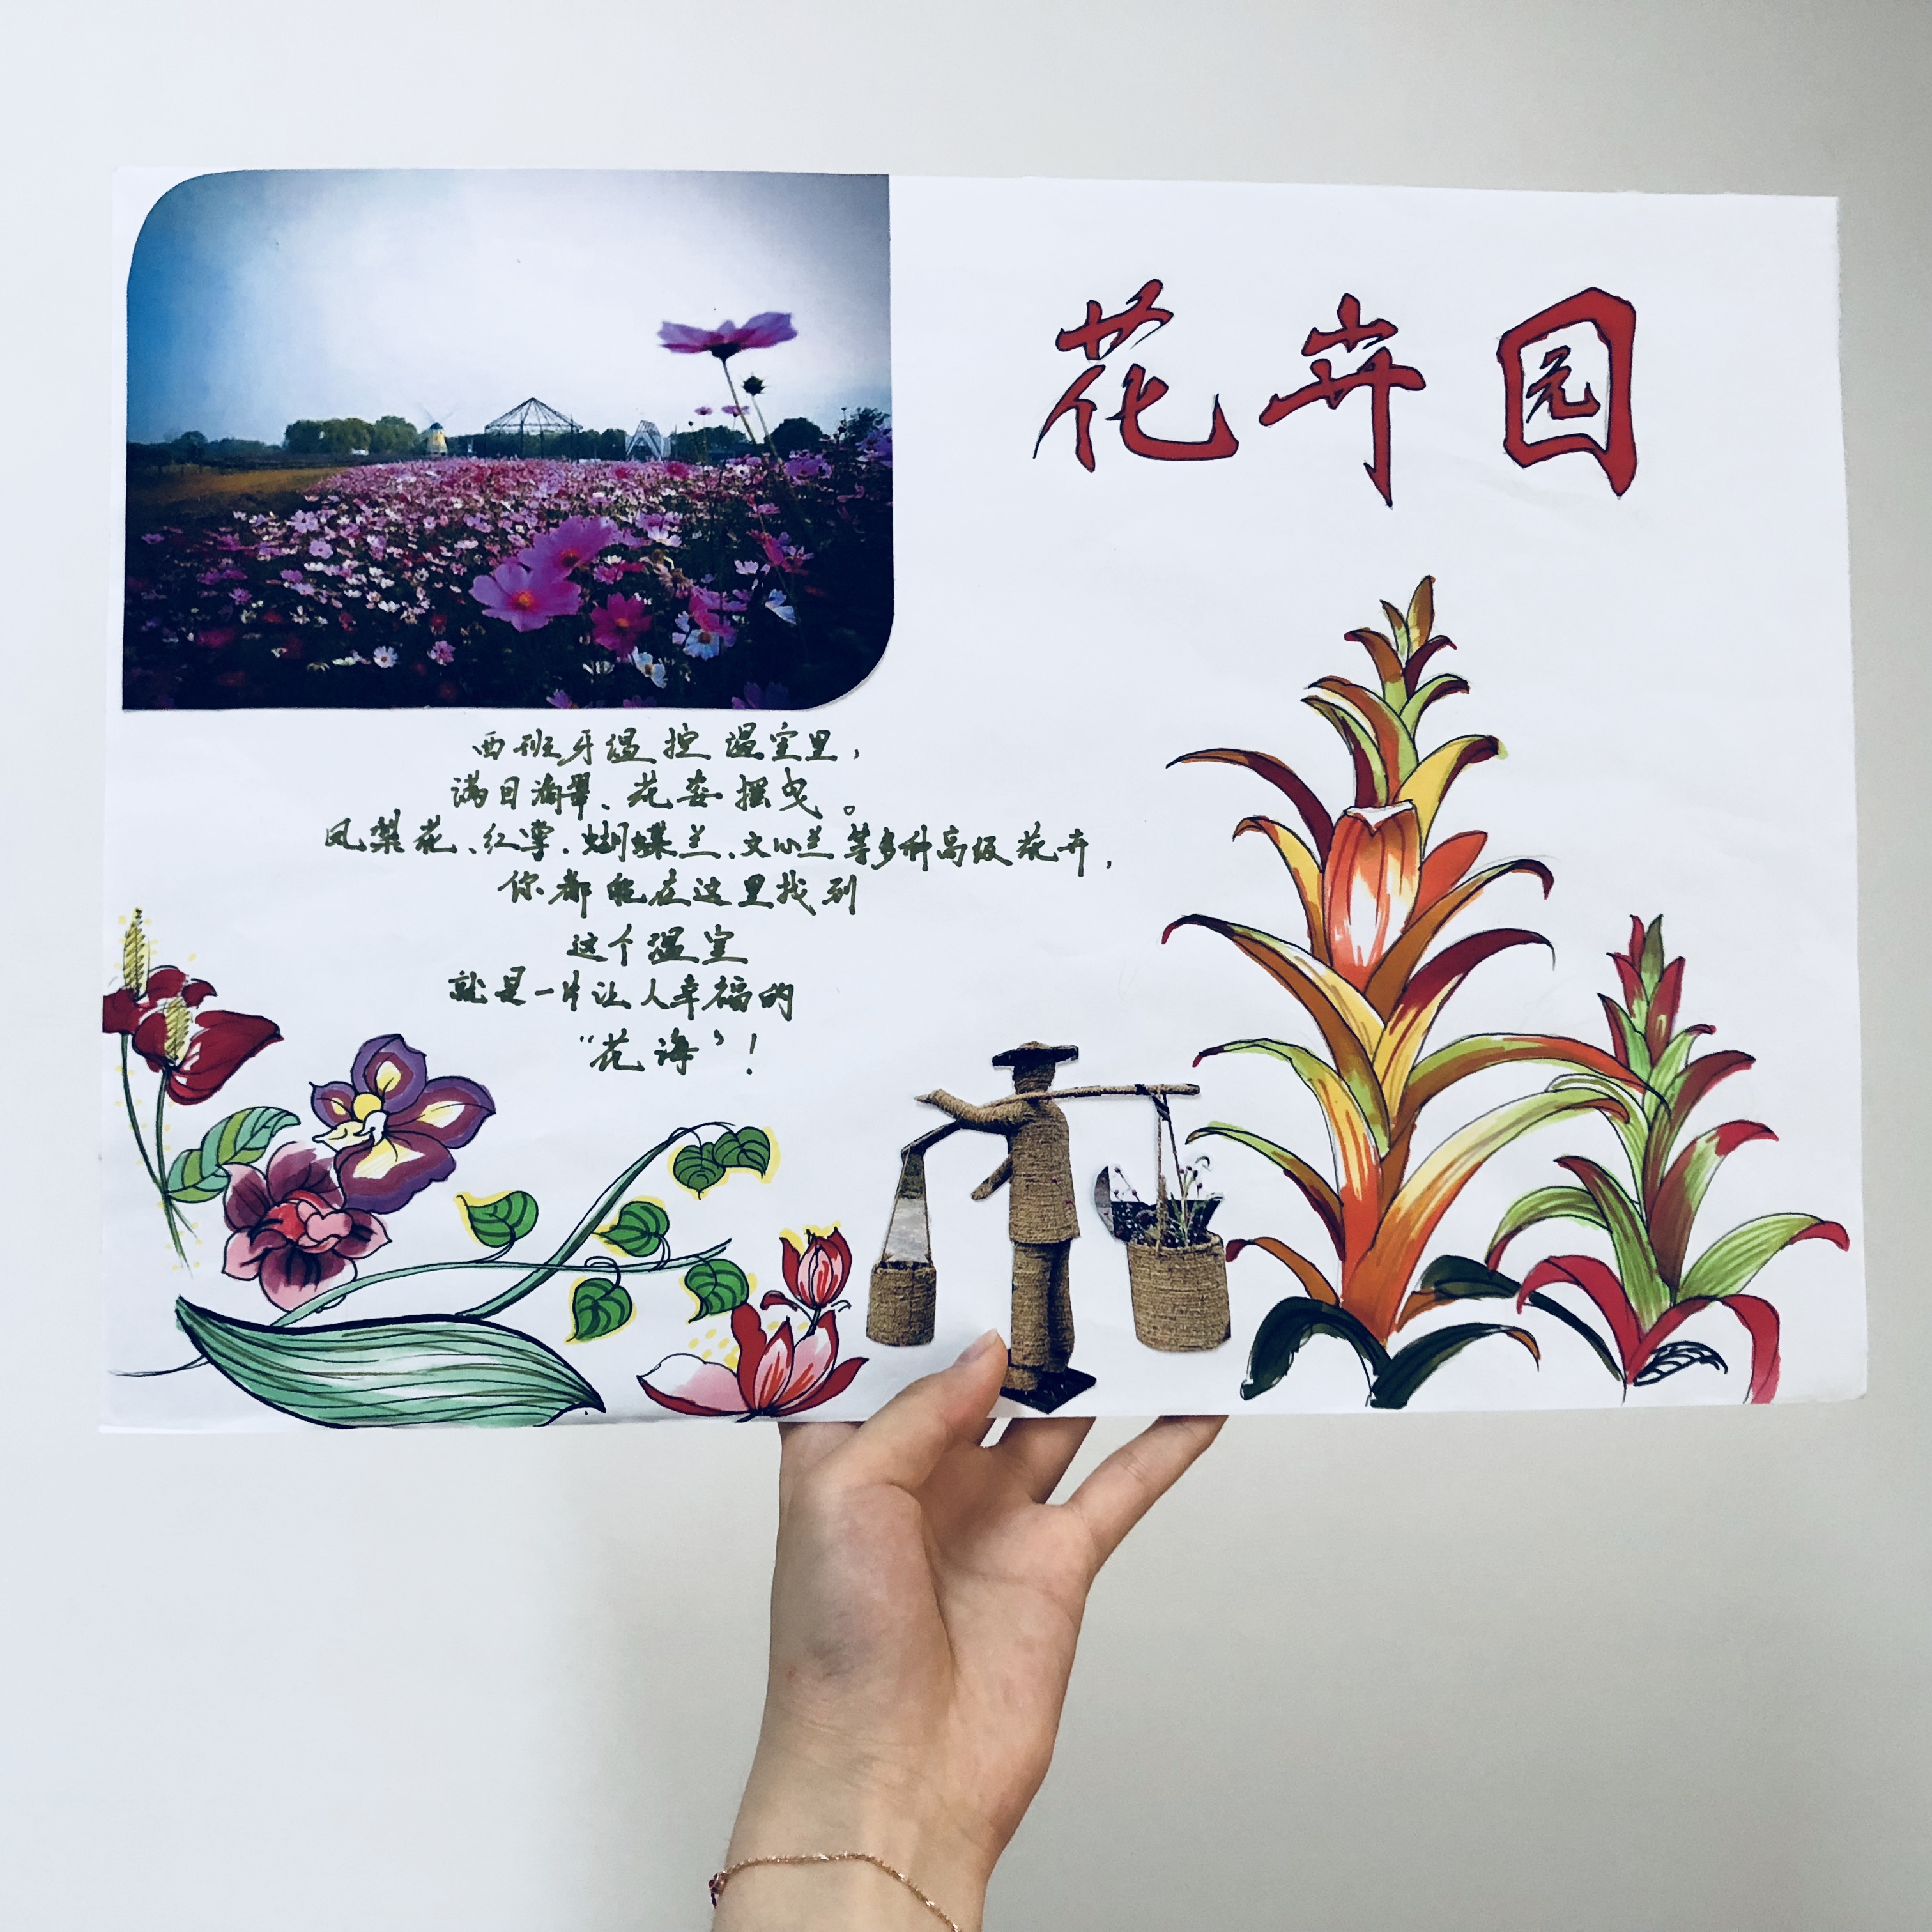 花卉园
西班牙温控温室里,
满目海翠、花姿摇曳。
凤梨花、红掌、蝴蝶兰、文心兰等多种高级花卉,
你都能在这里找到
这个温室
就是一片让人幸福的
“花海”!